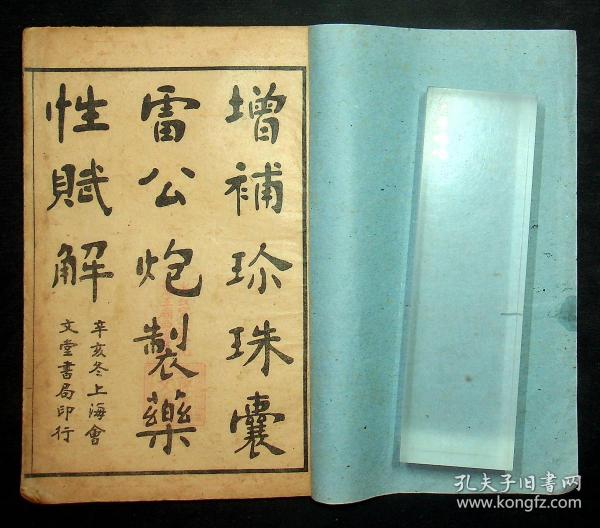 增補珍珠囊
雷公炮製藥
性賦解
辛亥冬上海會
文堂書局印行
孔夫子旧书网
www.kongfz.com